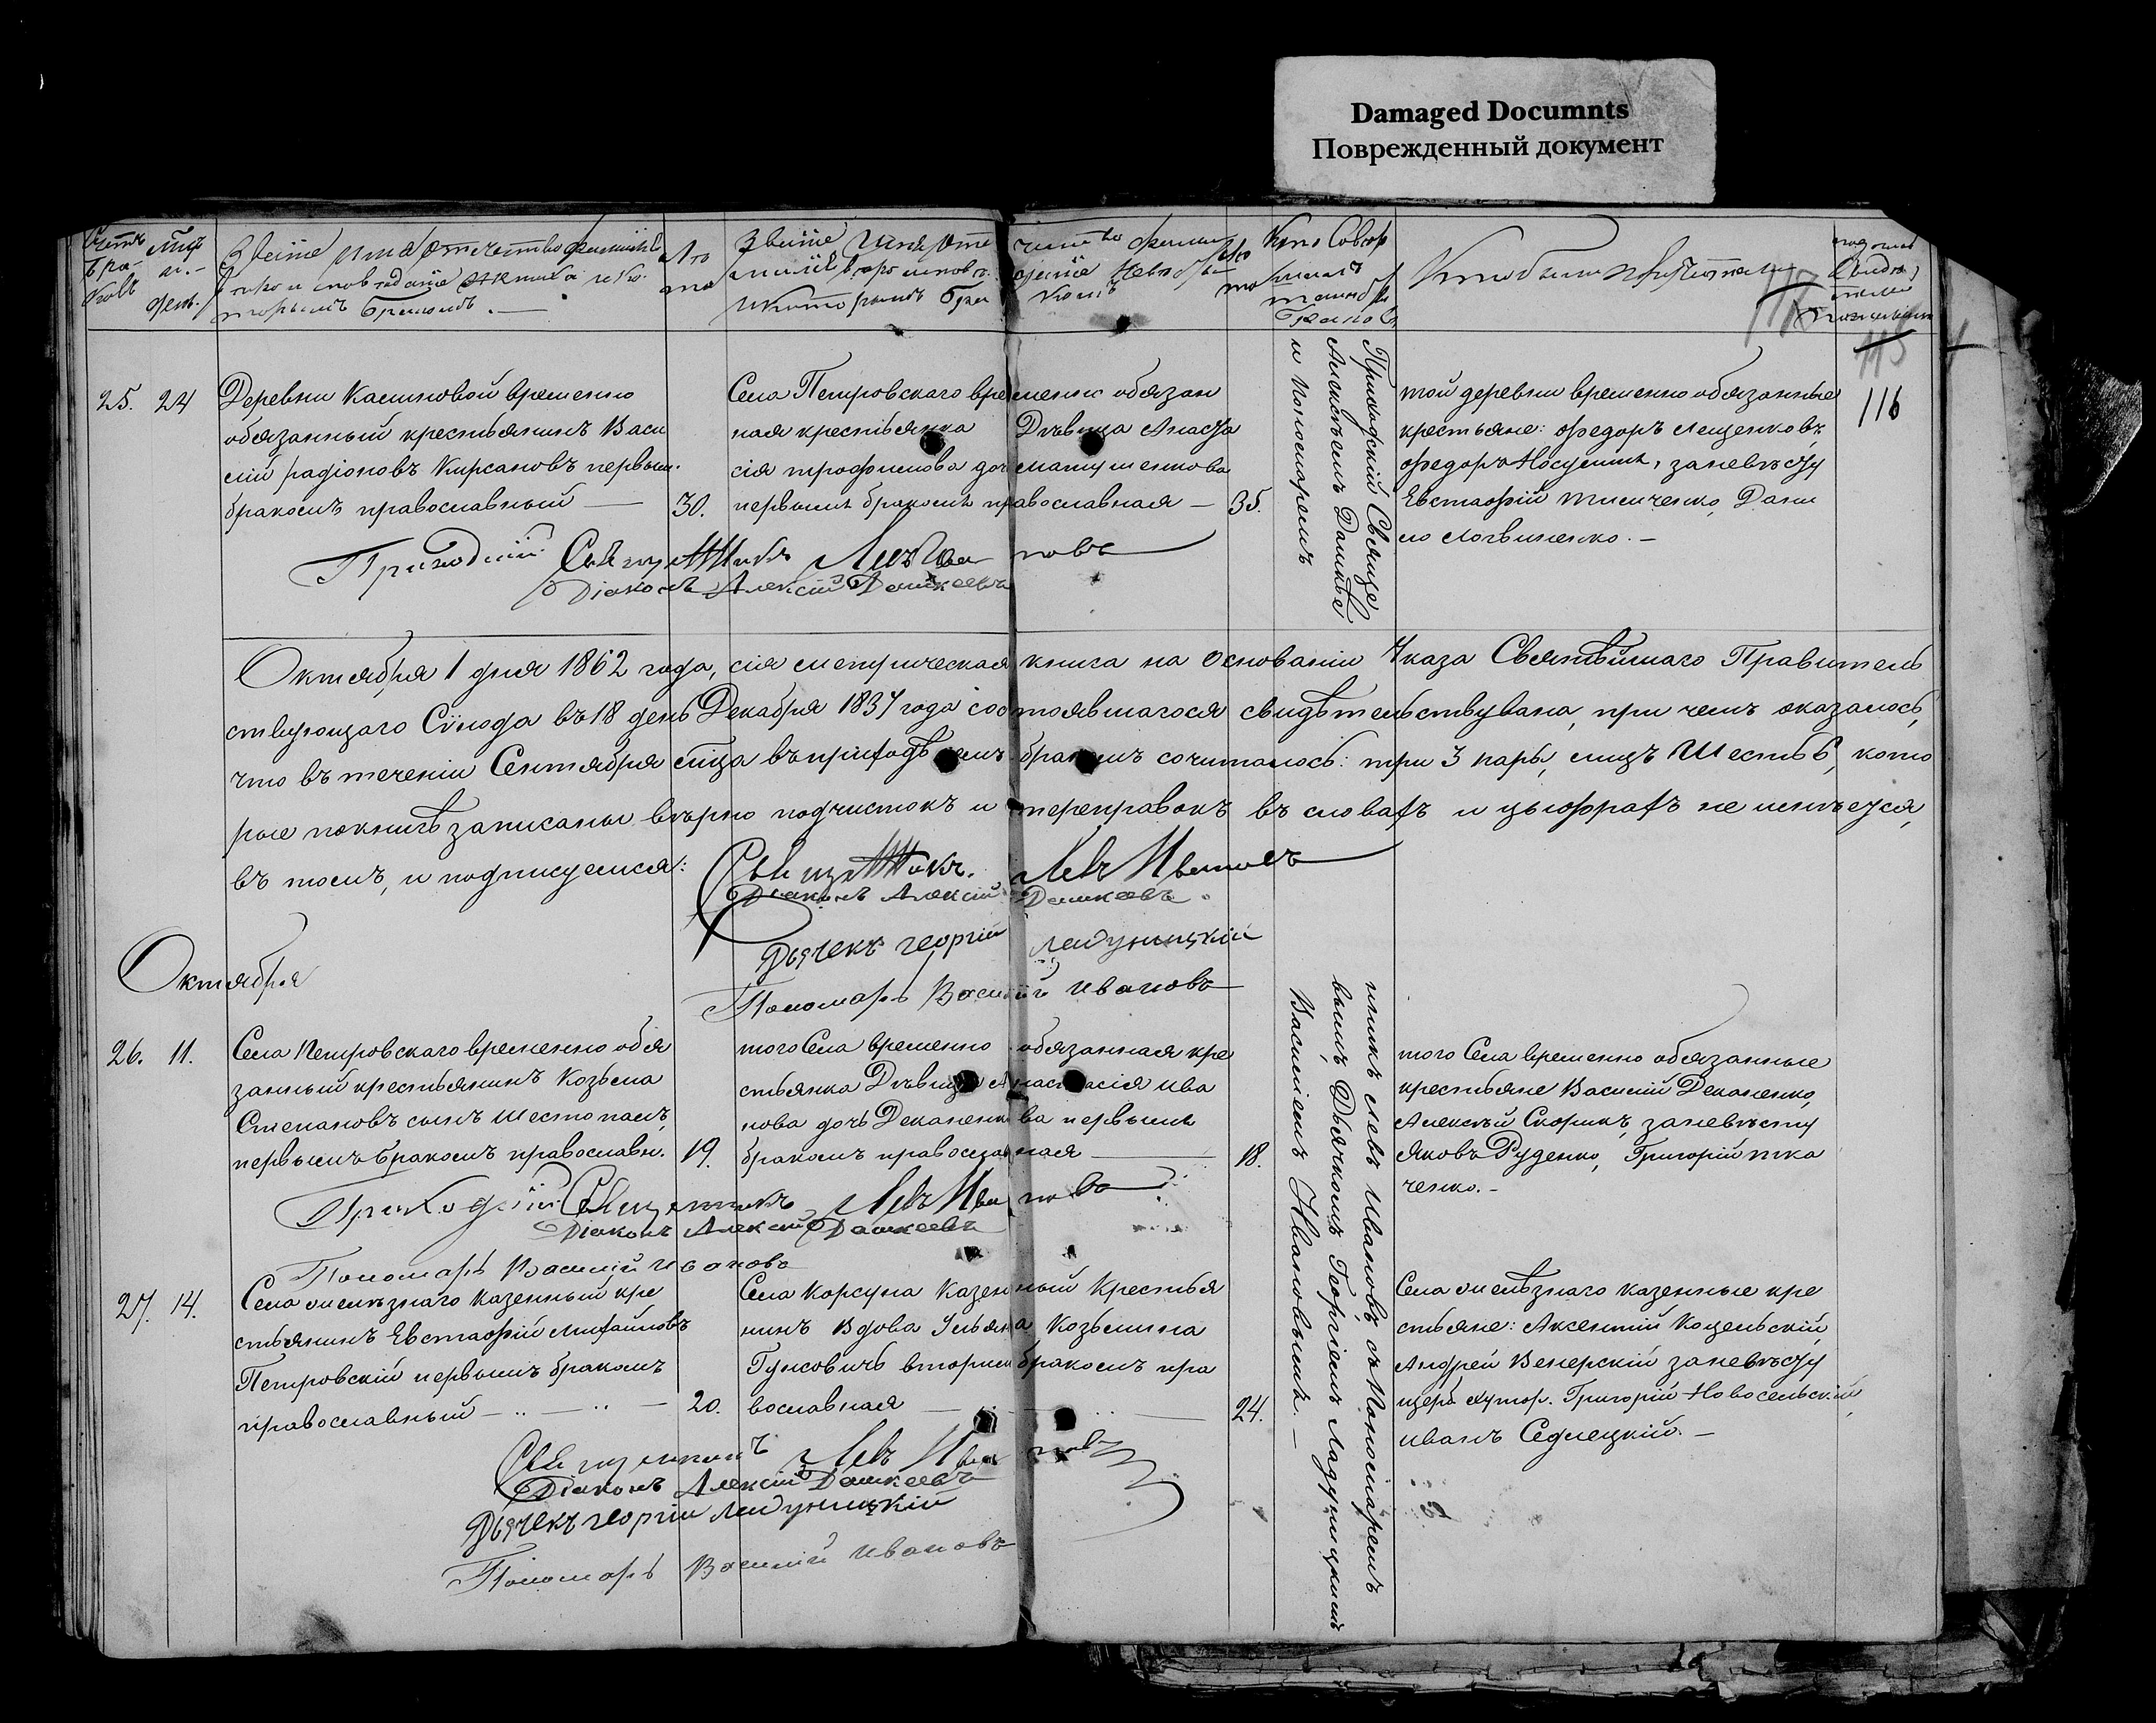 Damaged Documnts
Поврежденный документ
Счетъ бра- ковъ
Мцъ и.- день.
Званіе имя отчество фамилія
Лѣта
Званіе имя отче
чество фамилія
Лѣта
Кто Совер
Кто были поручители
115
116
25. 24
Деревни Касиновой временно
обязанный крестьянинъ Васи
лій радіоновъ Кирсановъ первым.
бракомъ православный — 30.
Села Петровскаго временно обязан
ная крестьянка Дѣвица Анаста
сія трофимова дочь матушенкова
первымъ бракомъ православная — 35.
Приходскій Свяще
Алексѣемъ Дашкѣев
и Пономаремъ
той деревни временно обязанные
крестьяне: федоръ Лещенковъ,
федоръ Носулинъ, заневѣсту
Евстафій тимченко, Дани
ло Логвиненко. –
Приходскій Священникъ Левъ Ивановъ
Діаконъ Алексій Дашкеевъ
Октября 1 дня 1862 года, сія метрическая книга на Основаніи Указа Святѣйшаго Правитель
ствующаго Сѵнода въ 18 день Декабря 1837 года состоявшагося свидѣтельствована, при чемъ оказалось,
что въ теченіи Сентября мѣца въ приходѣ семъ бракомъ сочиталось: три 3 пары, лицъ Шесть 6, кото
рые покнигѣ записаны вѣрно подчистокъ и переправокъ въ словахъ и цыфрахъ не имѣется,
въ томъ, и подписуемся:
Священникъ. Левъ Ивановъ
Діаконъ Алексій Дашкеевъ.
Дьячекъ георгій Ладуницкій
Пономарь Василій Ивановъ
Октября
26. 11.
Села Петровскаго временно обя
занный крестьянинъ Козьма
Степановъ сынъ Шестопалъ,
первымъ бракомъ православн. 19.
того Села временно обязанная кре
стьянка Дѣвица Анастасія ива
нова дочь Деканенкова первымъ
бракомъ православная — 18.
нникъ Левъ Ивановъ съ Пономаремъ
вымъ, Дьячкомъ Георгіемъ Ладуницкимъ
Василіемъ Ивановымъ. —
того Села временно обязанные
крестьяне Василій Деканенко,
Алексѣй Скорикъ, заневѣсту
Яковъ Руденко, Григорій тка
ченко. –
Приходскій Священникъ Левъ Ивановъ
Діаконъ Алексій Дашкеевъ
Пономарь Василій Ивановъ
27. 14.
Села Казенный кре
стьянинъ Евстафій Михайловъ
Петровскій первымъ бракомъ
православный — 20.
Села Корсуна Казенный Крестья
нинъ Вдова Ульяна Козьмина
Гунсовичъ вторымъ бракомъ пра
вославная — 24.
Села казенные кре
стьяне: Аксентій Коцельскій,
Андрей Венерскій заневѣсту
Григорій Новосельскій,
иванъ Седлецкій. –
Священникъ Левъ Ивановъ
Діаконъ Алексій Дашкеевъ
Дьячекъ георгій Ладуницкій
Пономарь Василій Ивановъ